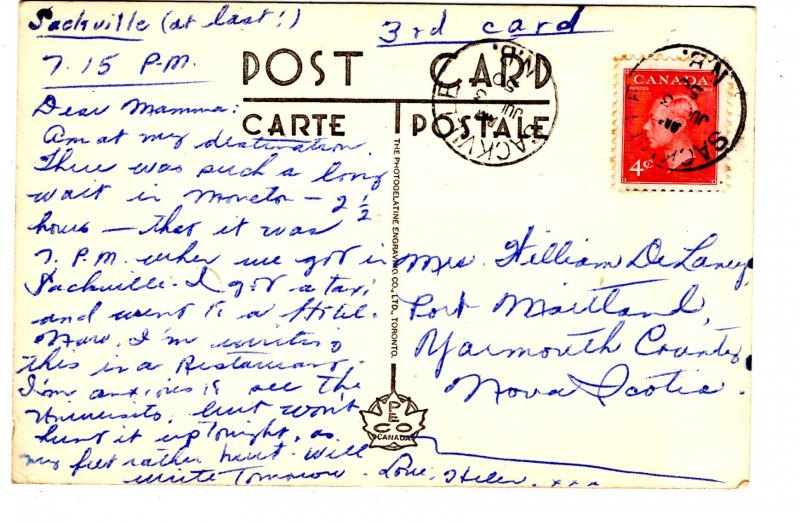 Sackville (at last!)
3rd card
7.15 P.M.
POST CARD
CARTE POSTALE
Dear Mamma:
Am at my destination.
There was such a long
wait in Moncton – 2 1/2
hours – that it was
7. P.M. when we got in
Sackville. I got a taxi
and went to a Hotel.
Now, I'm writing
this in a Restaurant.
I'm anxious to see the
University, but won't
hunt it up tonight, as
my feet rather hurt. Will
write Tomorrow. Love, Helen. xxx
THE PHOTOGELATINE ENGRAVING CO., LTD., TORONTO.
PECO
CANADA
SACKVILLE
N.B.
50
CANADA
POSTES POSTAGE
4¢
SACKVILLE
N.B.
50
Mrs. William DeLaney
Port Maitland,
Yarmouth County
Nova Scotia.